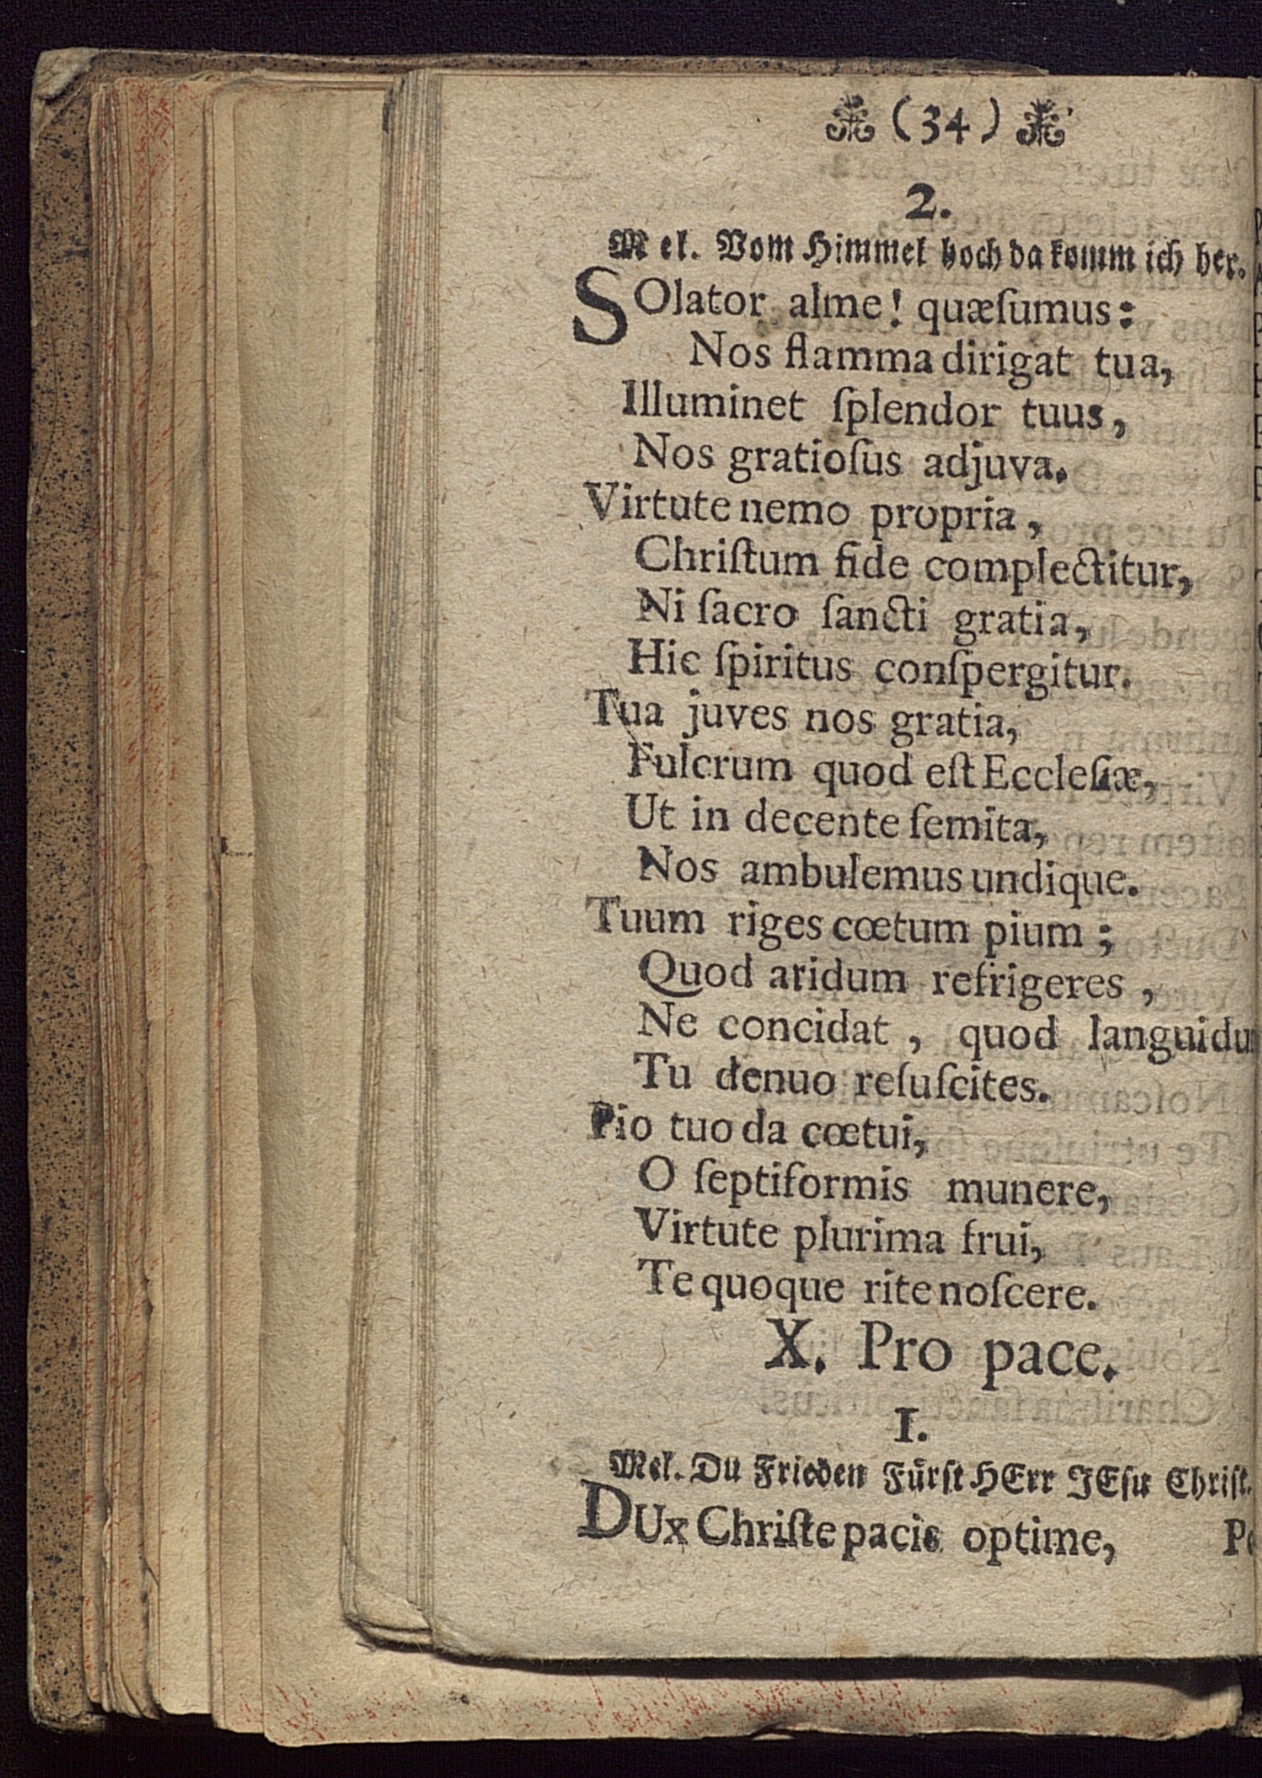 (34)
2.
Mel. Vom Himmel hoch da komm ich her.
SOlator alme! quæſumus:
Nos flamma dirigat tua,
Illuminet ſplendor tuus,
Nos gratioſus adjuva.
Virtute nemo propria,
Chriſtum fide complectitur,
Ni ſacro ſancti gratia,
Hic ſpiritus conſpergitur.
Tua juves nos gratia,
Fulcrum quod eſt Eccleſiæ,
Ut in decente ſemita,
Nos ambulemus undique.
Tuum riges cœtum pium;
Quod aridum refrigeres,
Ne concidat, quod languidu
Tu denuo reſuſcites.
Pio tuo da cœtui,
O ſeptiformis munere,
Virtute plurima frui,
Te quoque rite noſcere.
X. Pro pace.
1.
Mel. Du Frieden Fürſt HErr JEſu Chriſt.
DUx Chriſte pacis optime,